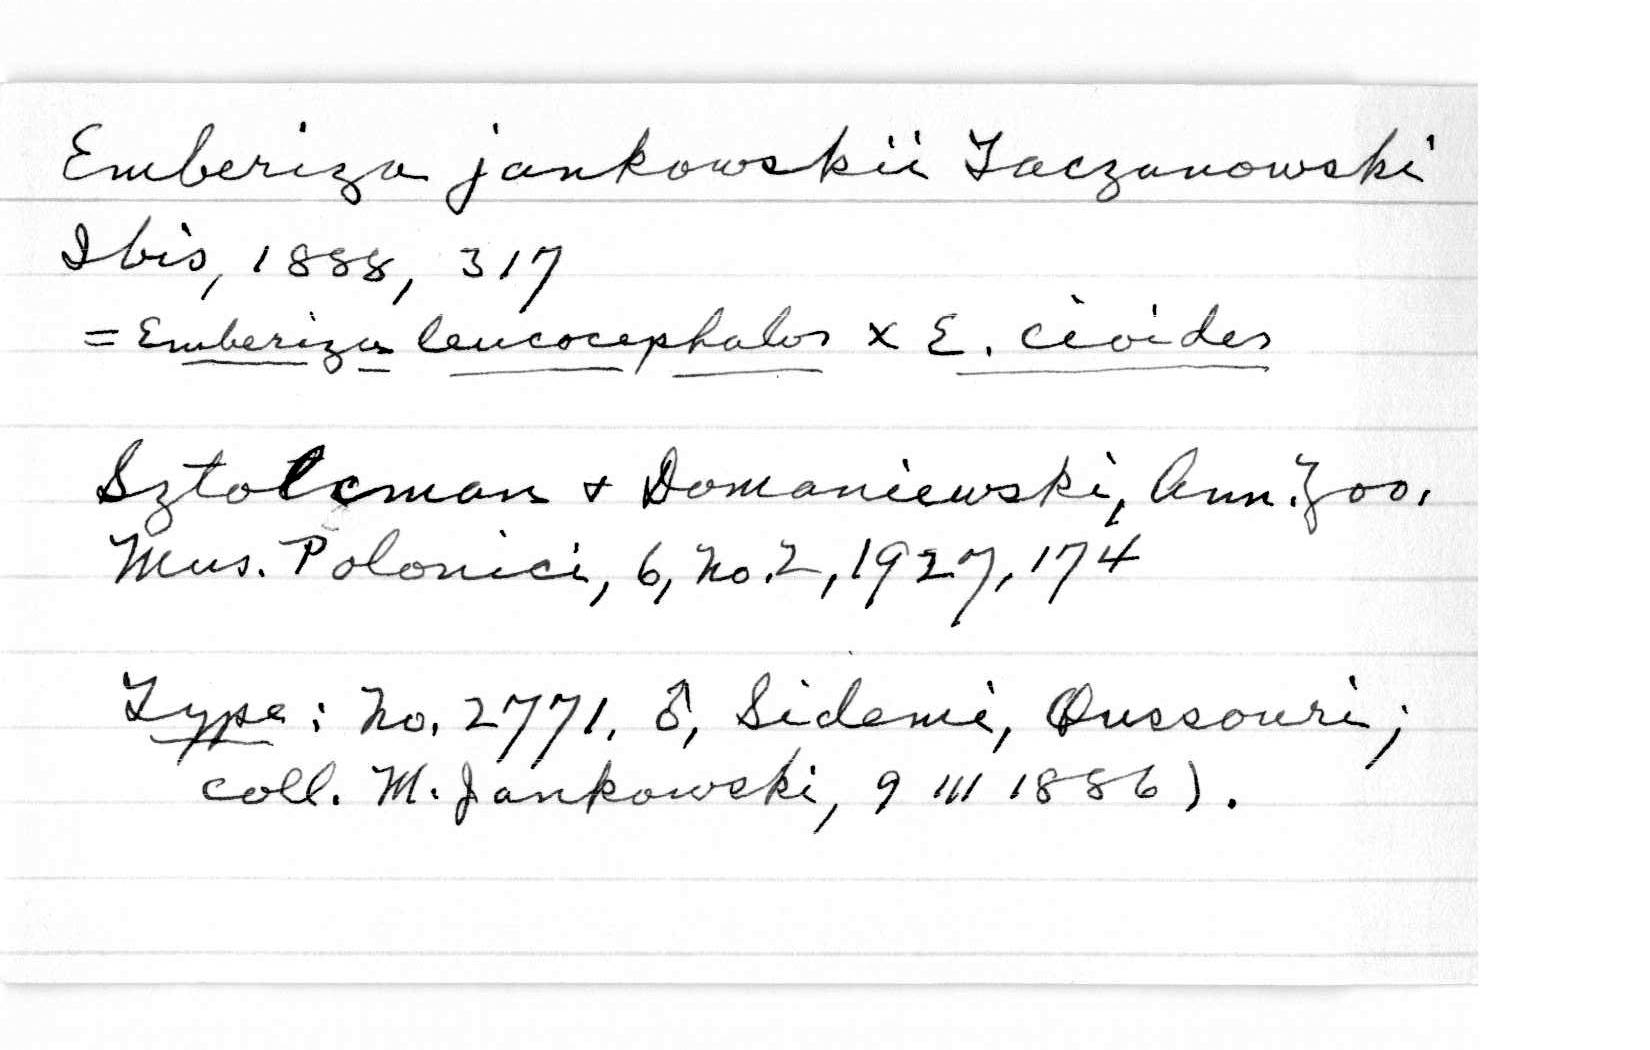 Emberiza jankowskii Taczanowski
Ibis, 1888, 317
= Emberiza leucocephalos x E. cioides
Sztolcman + Domaniewski, Ann. Zoo.
Mus. Polonici, 6, no. 2, 1927, 174
Type: no. 2771. ♂, Sidemi, Oussouri;
coll. M. Jankowski, 9 III 1886).